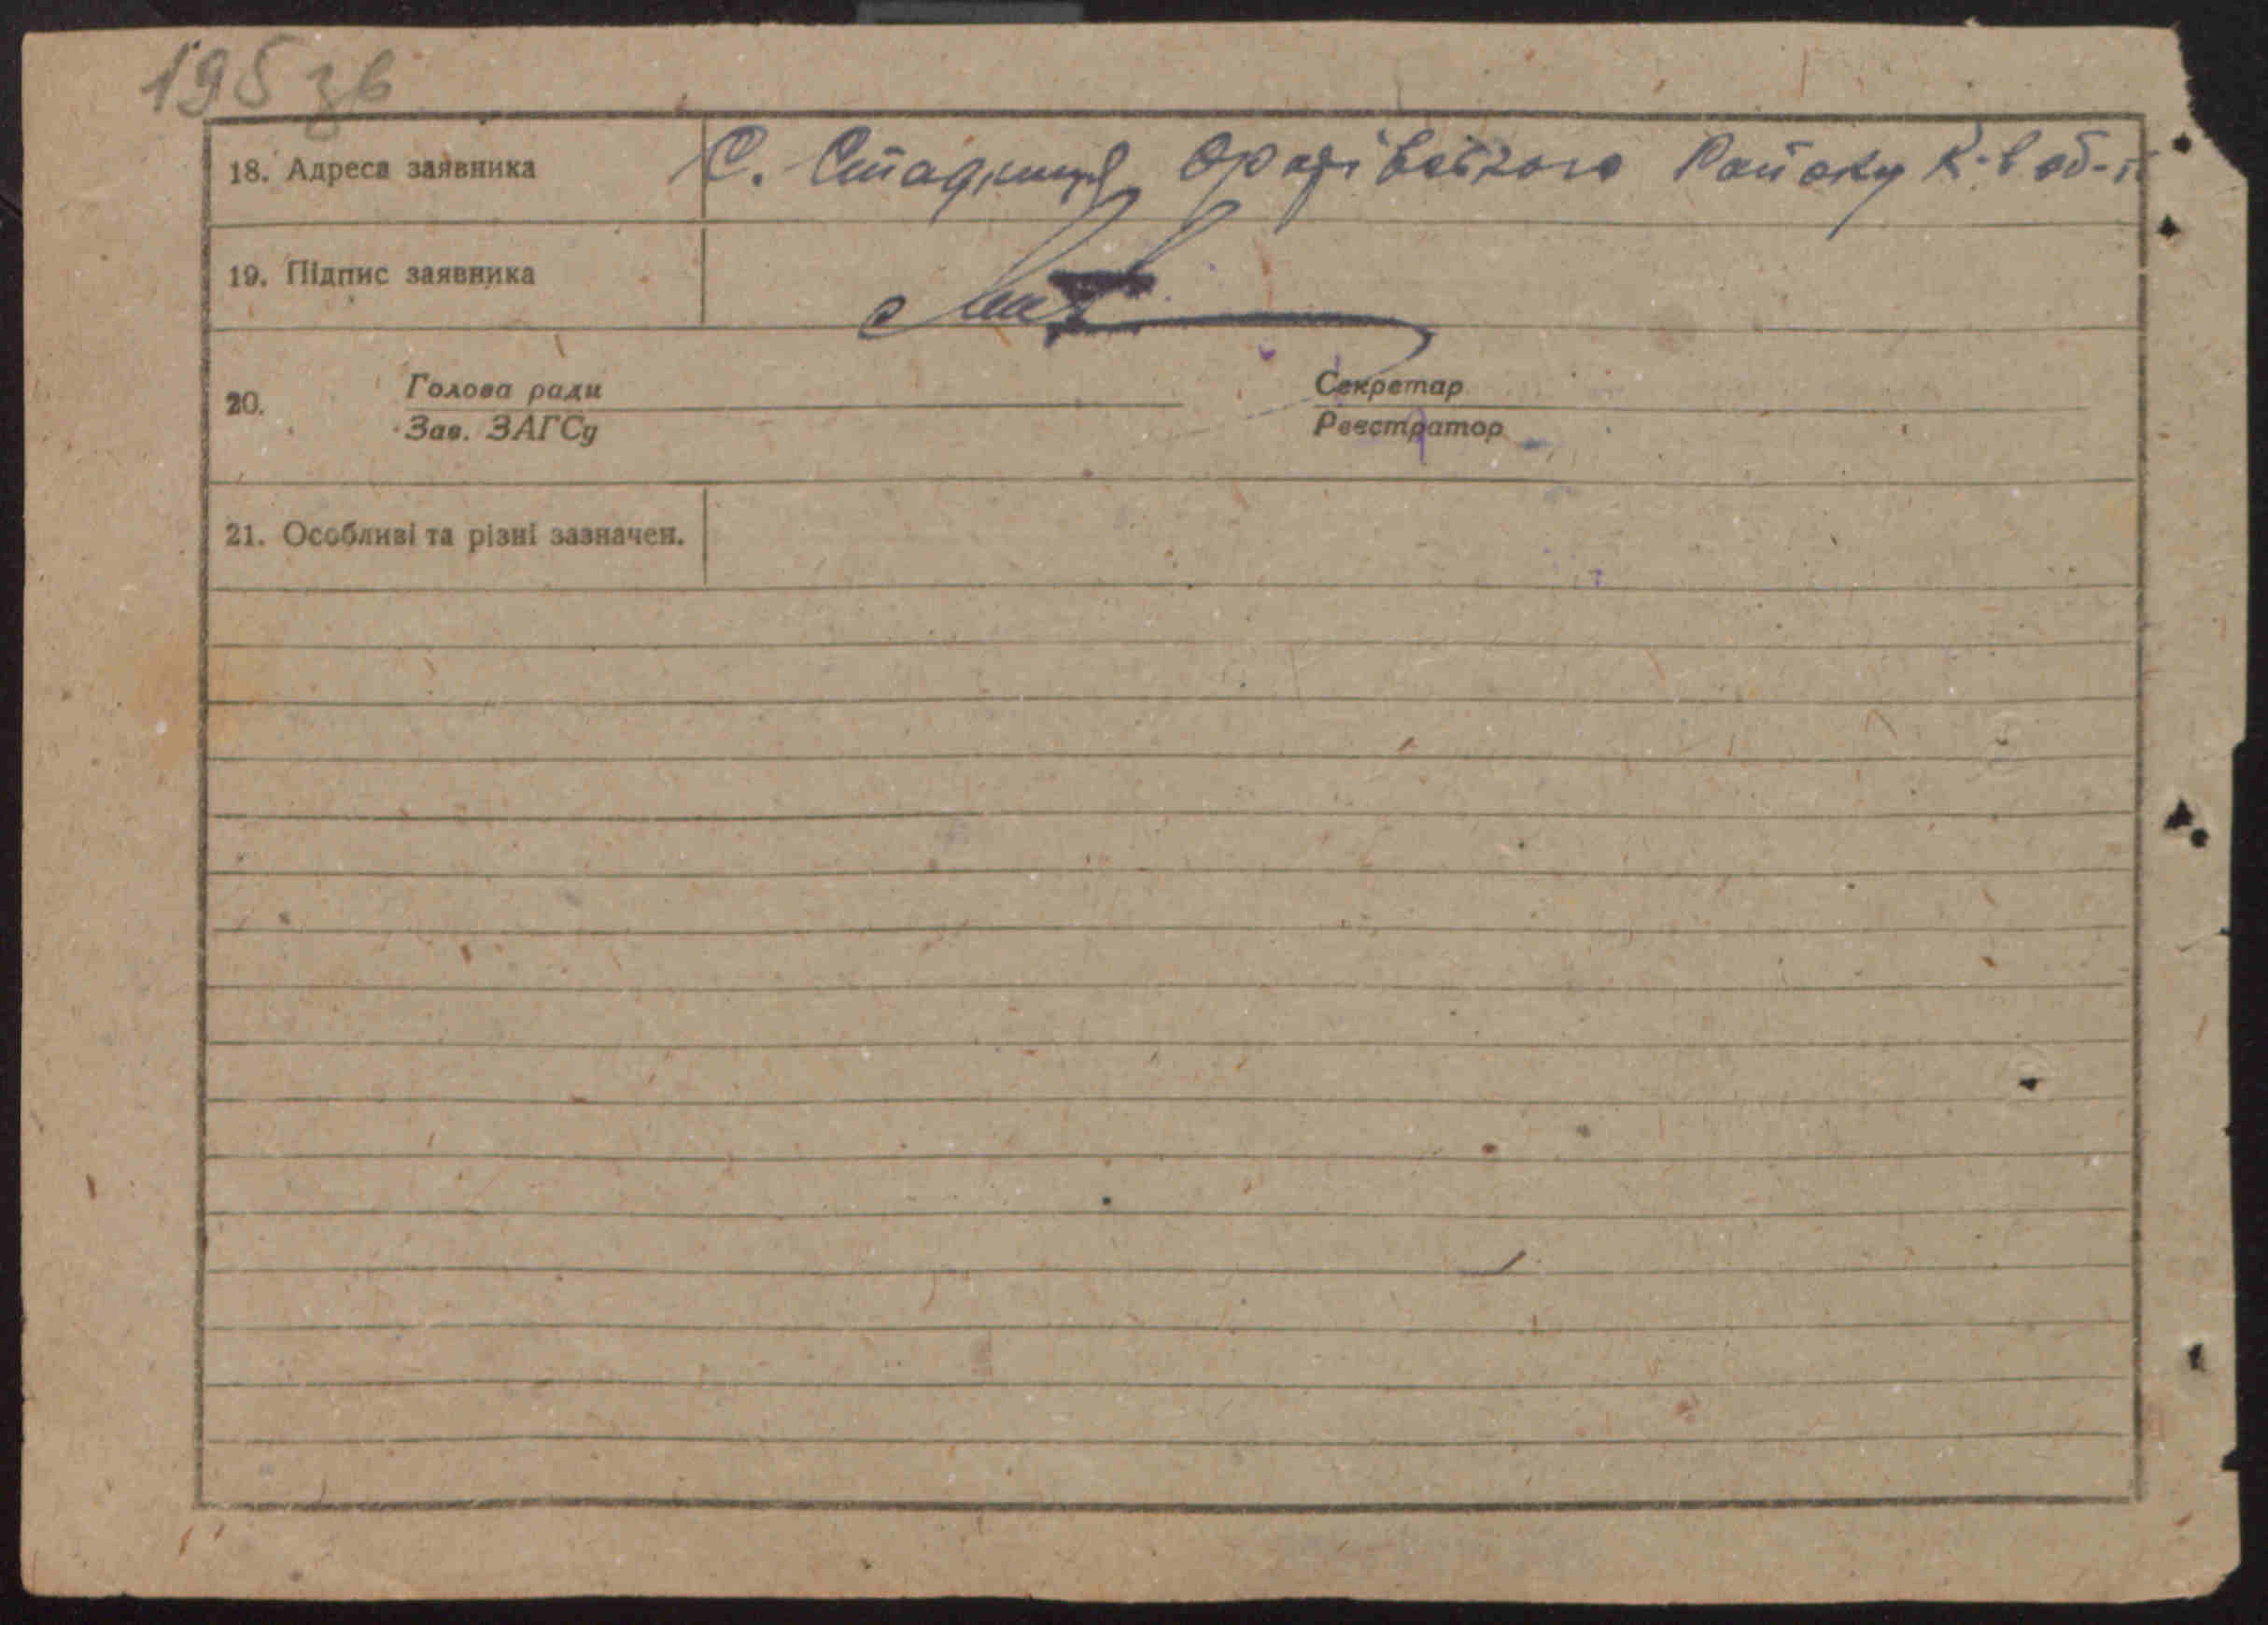 195 зв
18. Адреса заявника С. Стадниця району К-в об-ї
19. Підпис заявника
20. Голова ради Секретар
Зав. ЗАГСу Реєстратор
21. Особливі та різні зазначен.